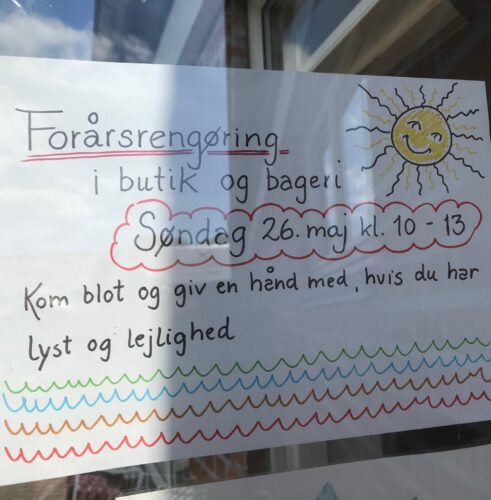 Forårsrengøring
i butik og bageri
Søndag 26. maj kl. 10 - 13
Kom blot og giv en hånd med, hvis du har
lyst og lejlighed